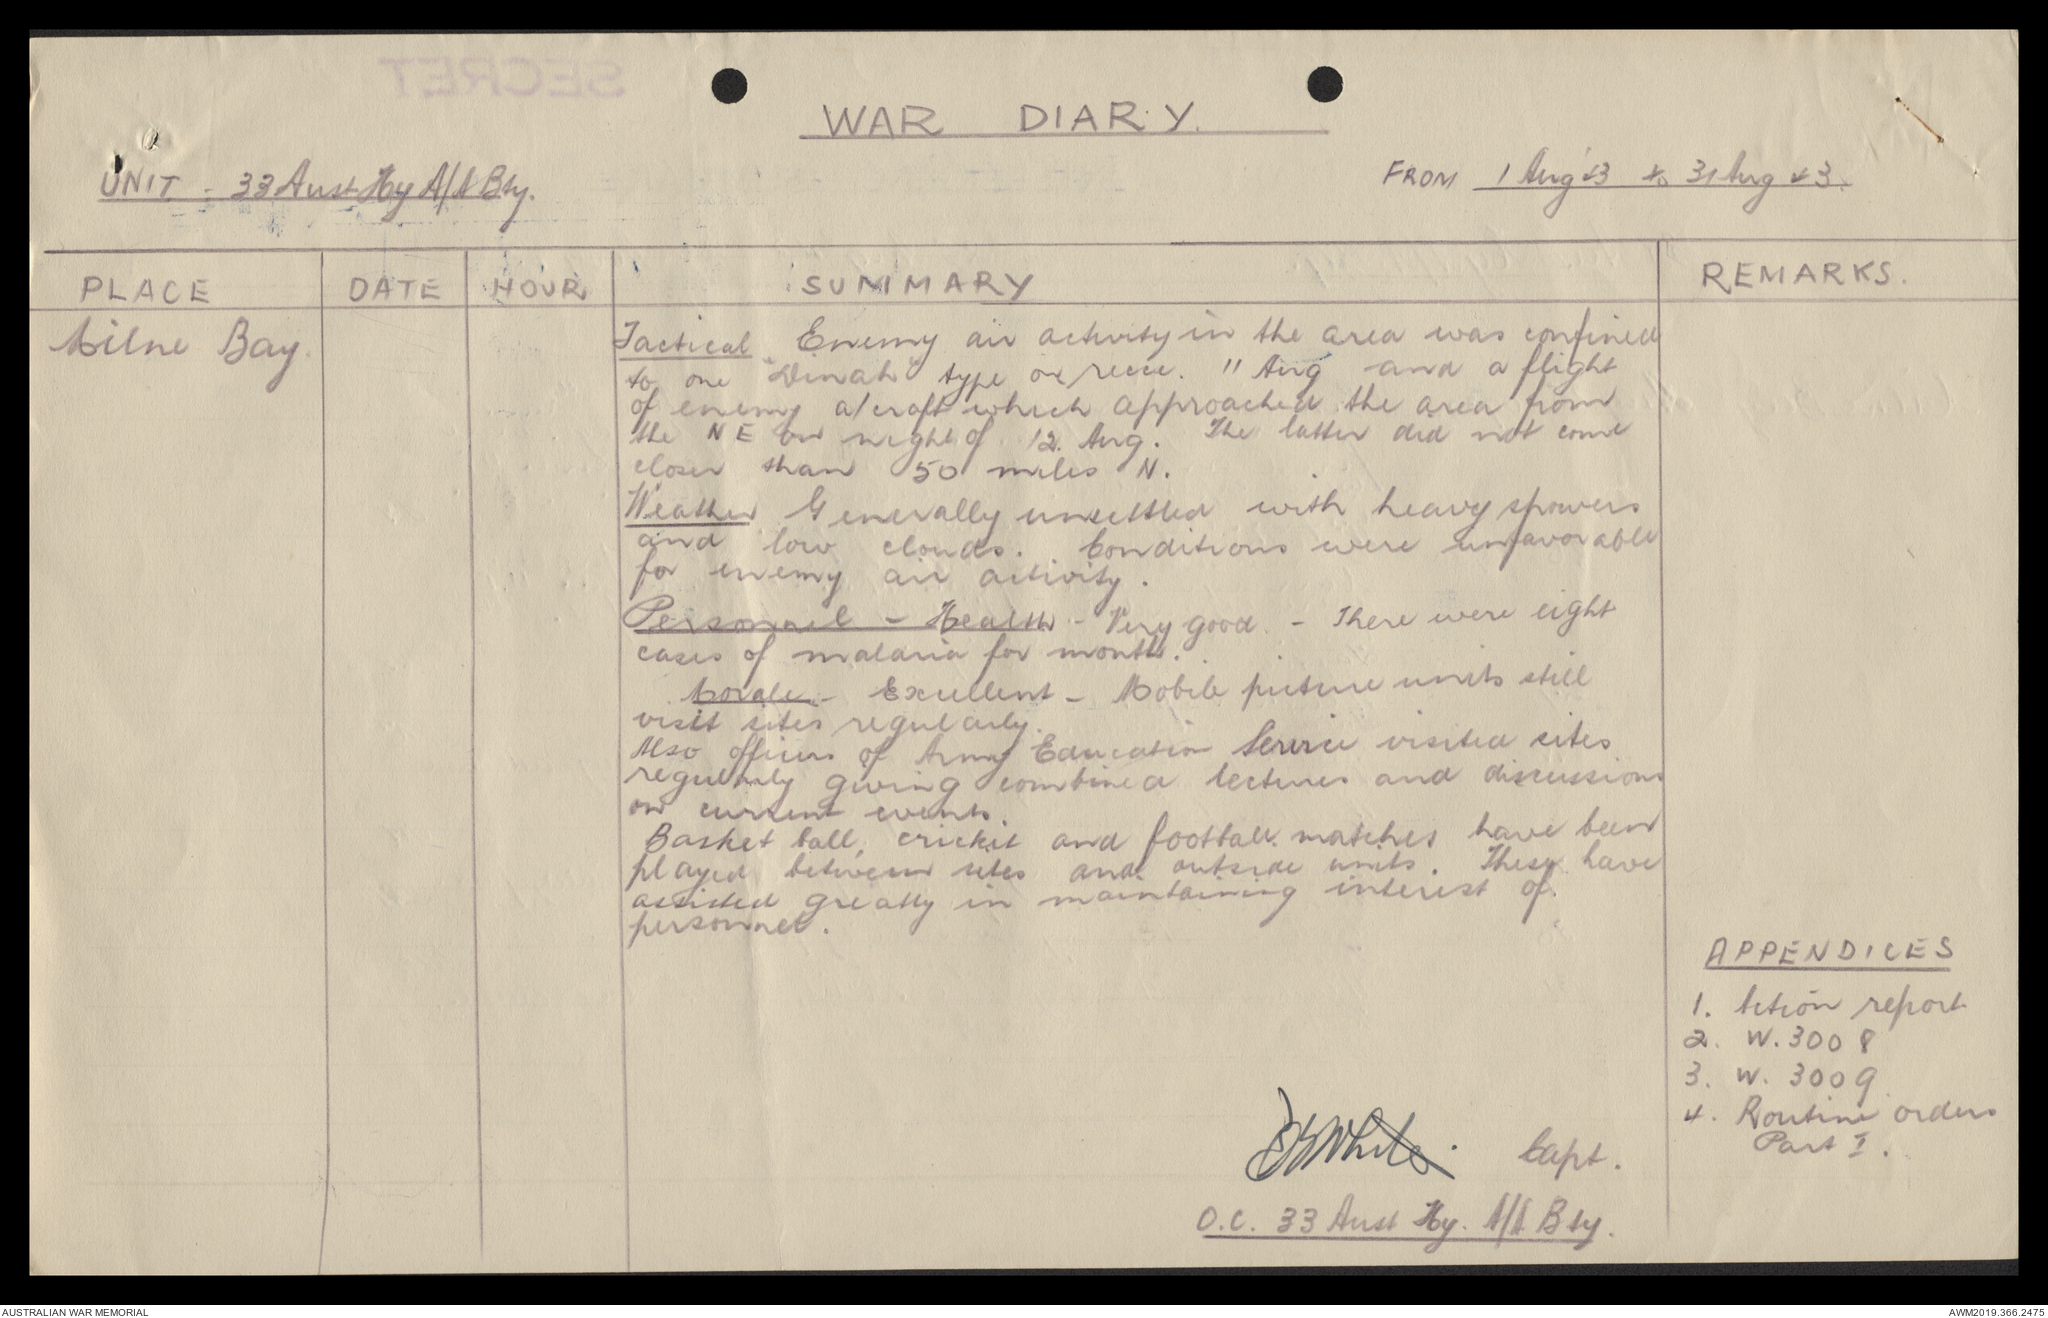 SECRET
WAR DIARY.
UNIT - 33 Aust Hy A/A Bty.
FROM 1 Aug 43 to 31 Aug 43.
PLACE DATE HOUR SUMMARY REMARKS.
Milne Bay.
Tactical Enemy air activity in the area was confined
to one "Dinah" type on recce. 11 Aug and a flight
of enemy a/craft which approached the area from
the NE on night of 12. Aug. The latter did not come
closer than 50 miles N.
Weather Generally unsettled with heavy showers
and low clouds. Conditions were unfavorable
for enemy air activity.
Personnel - Health - Very good. - There were eight
cases of malaria for month.
Morale - Excellent - Mobile picture units still
visit sites regularly.
Also officers of Army Education Service visited sites
regularly giving combined lectures and discussions
on current events.
Basket ball, cricket and football matches have been
played between sites and outside units. These have
assisted greatly in maintaining interest of
personnel.
APPENDICES
1. Action report
2. W.3008
3. W. 3009
4. Routine orders
Part I.
White Capt.
O.C. 33 Aust Hy. A/A Bty.
AUSTRALIAN WAR MEMORIAL
AWM2019.366.2475